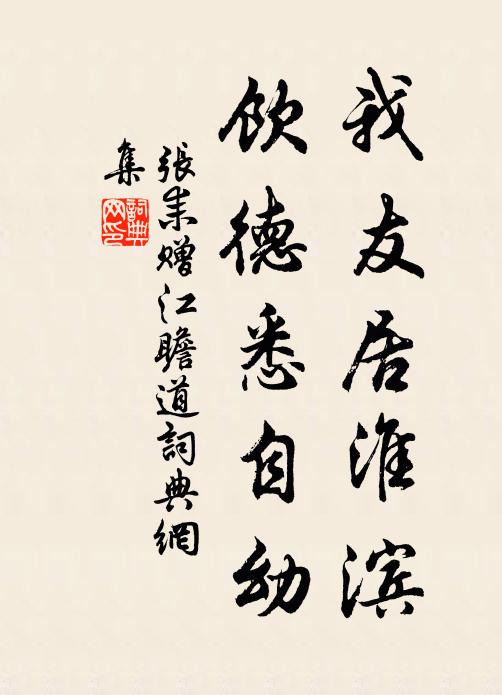 我友居淮滨
飲德悉自幼
張耒赠江瞻道詞典網
集
詞典
网印